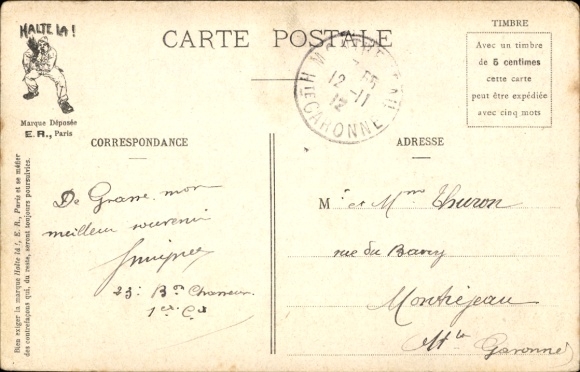 HALTE LÀ !
Marque Déposée
E. R., Paris
CARTE POSTALE
TIMBRE
Avec un timbre
de 5 centimes
cette carte
peut être expédiée
avec cinq mots
12-11
12
Hte GARONNE
CORRESPONDANCE
ADRESSE
De Grasse mon
meilleur souvenir
23e Bon Chasseurs
1ère Cie
Mr et Mme Thuron
rue du Barry
Montréjeau
Hte Garonne
Bien exiger la marque Halte là !, E. R., Paris et se méfier
des contrefaçons qui, du reste, seront toujours poursuivies.